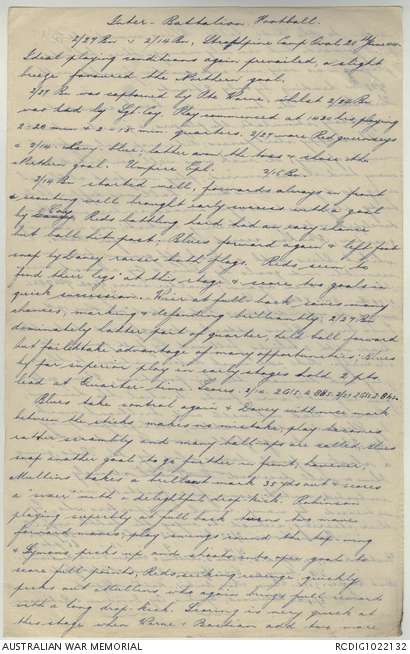 Inter-Battalion Football.
2/27 Bn v 2/14 Bn, Strathpine Camp Oval 20th June 44.
Ideal playing conditions again prevailed, a slight
breeze favoured the Northern goal.
2/27 Bn was captained by Pte Warne, whilst 2/14 Bn
was led by Sgt Coy. Play commenced at 1420 hrs playing
2-20 min & 2-18 min quarters. 2/27 wore Red guernseys
& 2/14 Navy Blue; latter won the toss & chose the
Northern goal. Umpire Cpl. 2/5 Bn.
2/14 Bn started well, forwards always in front
& scouting well brought early success with a goal
by Reds battling hard had an easy chance
but ball hit post; Blues forward again & left foot
snap by Davey raises both flags. Reds seem to
find their legs at this stage & score two goals in
quick succession. at full back saves many
chances, marking & defending brilliantly. 2/27 Bn
dominate latter part of quarter, held ball forward
but fail to take advantage of many opportunities; Blues
by far superior play in early stages hold 2 pts
lead at Quarter time. Scores. 2/14
Blues take control again & Davey with over mark
between the sticks makes no mistake, play becomes
rather scrambly and many ball-ups are called. Blues
snap another goal to go further in front, however,
Mullins takes a brilliant mark 35 yds out & scores
a "sixer" with a delightful drop kick. Robinson
playing superbly at full back turns two more
forward moves; play swings round the top wing
& Symons picks up and shoots into open goal to
score full points; Reds, seeking revenge quickly
picks out Mullins who again brings full reward
with a long drop kick. Scoring is very quick at
this stage when Warne & add two more
AUSTRALIAN WAR MEMORIAL
RCDIG1022132